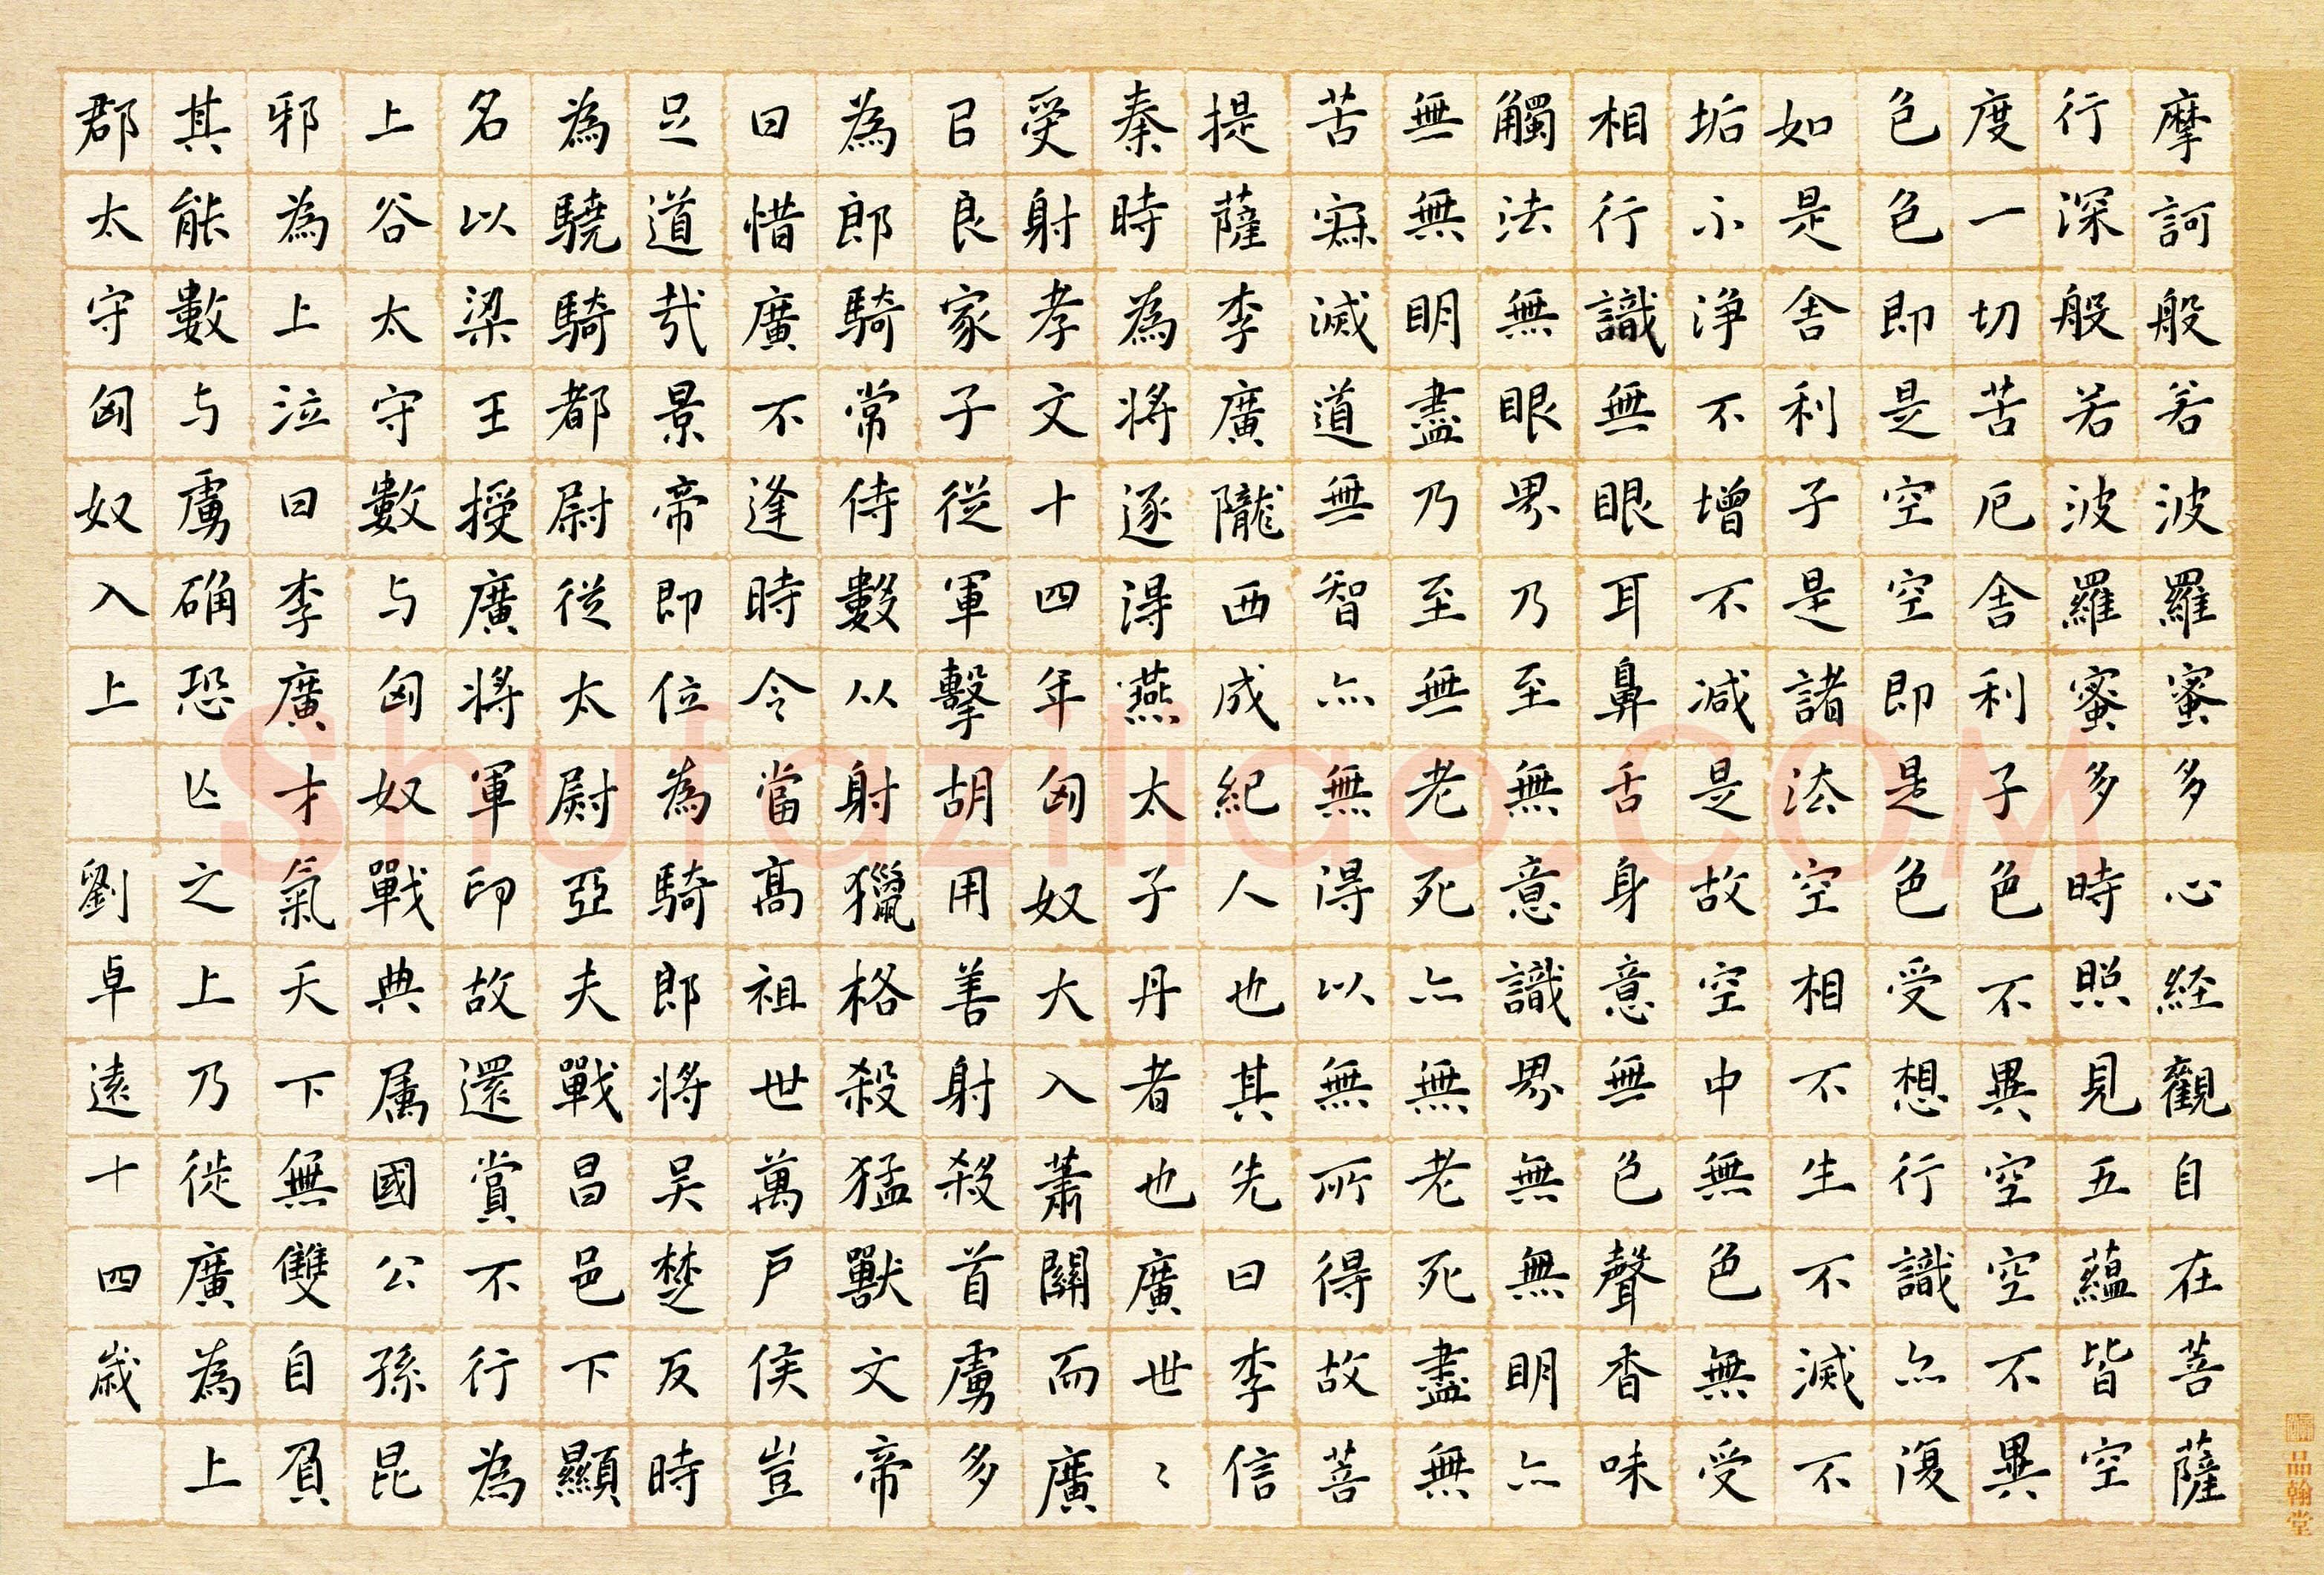 摩訶般若波羅蜜多心経觀自在菩薩
行深般若波羅蜜多時照見五蘊皆空
度一切苦厄舍利子色不異空空不異
色色即是空空即是色受想行識亦復
如是舍利子是諸法空相不生不滅不
垢不淨不增不減是故空中無色無受
相行識無眼耳鼻舌身意無色聲香味
觸法無眼界乃至無意識界無無明亦
無無明盡乃至無老死亦無老死盡無
苦寂滅道無智亦無得以無所得故菩
提薩李廣隴西成紀人也其先曰李信
秦時為將逐得燕太子丹者也廣世〻
受射孝文十四年匈奴大入蕭關而廣
㠯良家子從軍擊胡用善射殺首虜多
為郎騎常侍數从射獵格殺猛獸文帝
曰惜廣不逢時令當高祖世萬戶侯豈
足道哉景帝即位為騎郎將吳楚反時
為驍騎都尉從太尉亞夫戰昌邑下顯
名以梁王授廣將軍印故還賞不行為
上谷太守數与匈奴戰典属國公孫昆
邪為上泣曰李廣才氣天下無雙自負
其能數与虜确恐亡之上乃徙廣為上
郡太守匈奴入上
劉卓遠十四歲
品翰堂
Shufaziliao.COM